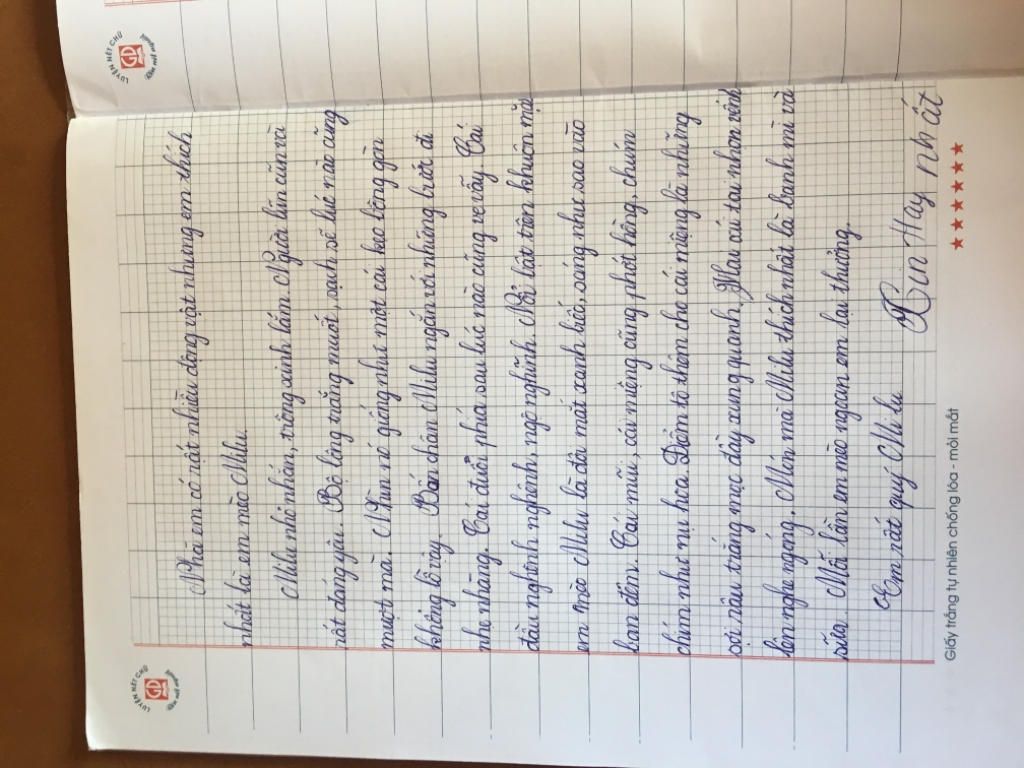 LUYỆN NÉT CHỮ
GD
Nhà em có rất nhiều động vật nhưng em thích
nhất là em mèo Milu.
Milu nhỏ nhắn, trông xinh lắm. Người lũn cũn và
rất đáng yêu. Bộ lông trắng muốt, sạch sẽ lúc nào cũng
mượt mà. Nhìn nó giống như một cái kẹo bông gòn
khổng lồ vậy. Bốn chân Milu ngắn với những bước đi
nhẹ nhàng. Cái đuôi phía sau lúc nào cũng ve vẩy. Cái
đầu nghênh nghênh, ngộ nghĩnh. Nổi bật trên khuôn mặt
em mèo Milu là đôi mắt xanh biếc, sáng như sao vào
ban đêm. Cái mũi, cái miệng cũng phớt hồng, chúm
chím như nụ hoa. Điểm tô thêm cho cái miệng là những
sợi râu trắng mọc đầy xung quanh. Hai cái tai nhọn vểnh
lên nghe ngóng. Món mà Milu thích nhất là bánh mì và
sữa. Mỗi lần em mèo ngoan em lại thưởng.
Em rất quý Mi lu.
Hay nhất
Giấy trắng tự nhiên chống lóa - mỏi mắt
LUYỆN NÉT CHỮ
GD